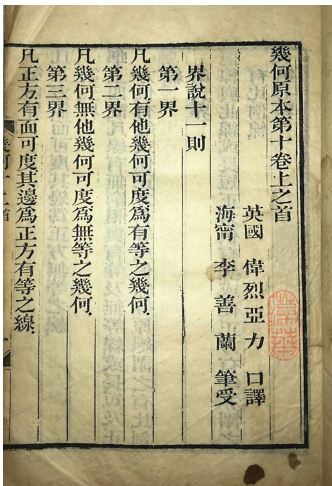 幾何原本第十卷上之首
英國 偉烈亞力 口譯
海甯 李善蘭 筆受
界說十一則
第一界
凡幾何有他幾何可度爲有等之幾何
第二界
凡幾何無他幾何可度爲無等之幾何
第三界
凡正方有面可度其邊爲正方有等之線